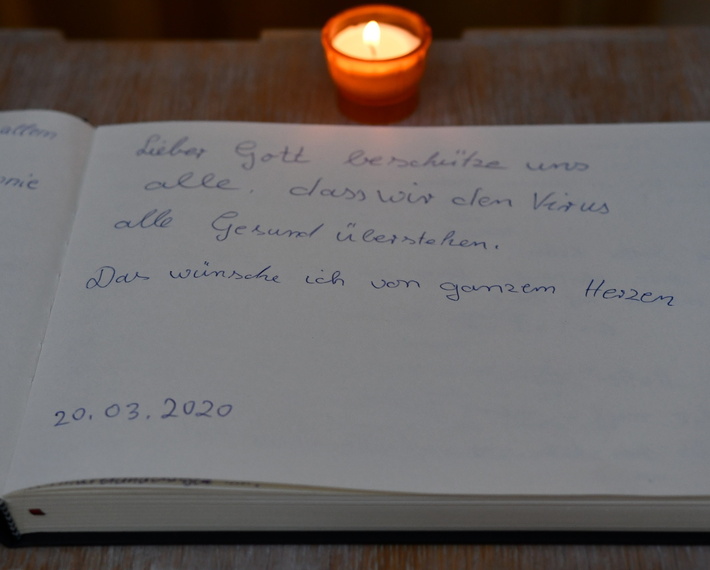 allem
Lieber Gott beschütze uns
alle, dass wir den Virus
alle Gesund überstehen.
Das wünsche ich von ganzem Herzen
20.03.2020